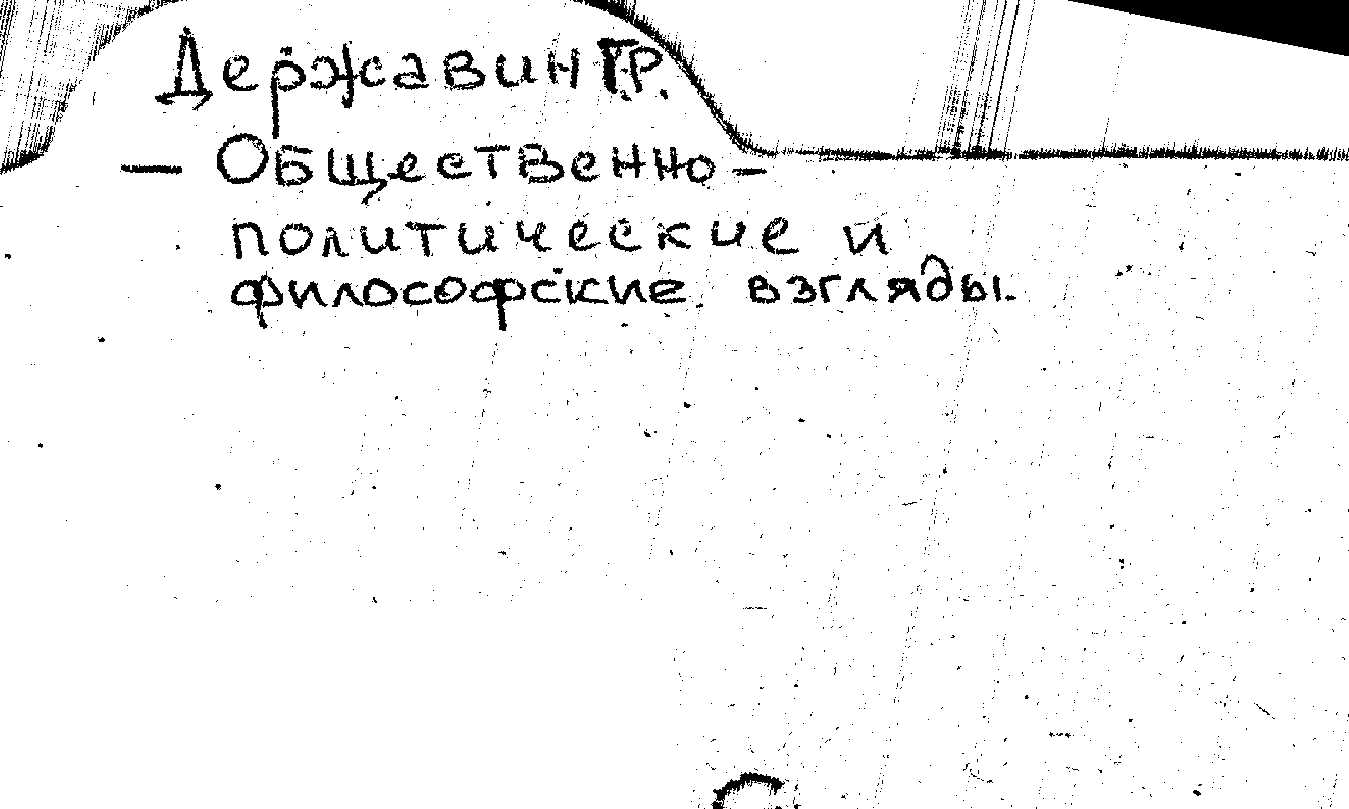 Державин Г.Р.
— Общественно-
политические и
философские взгляды.